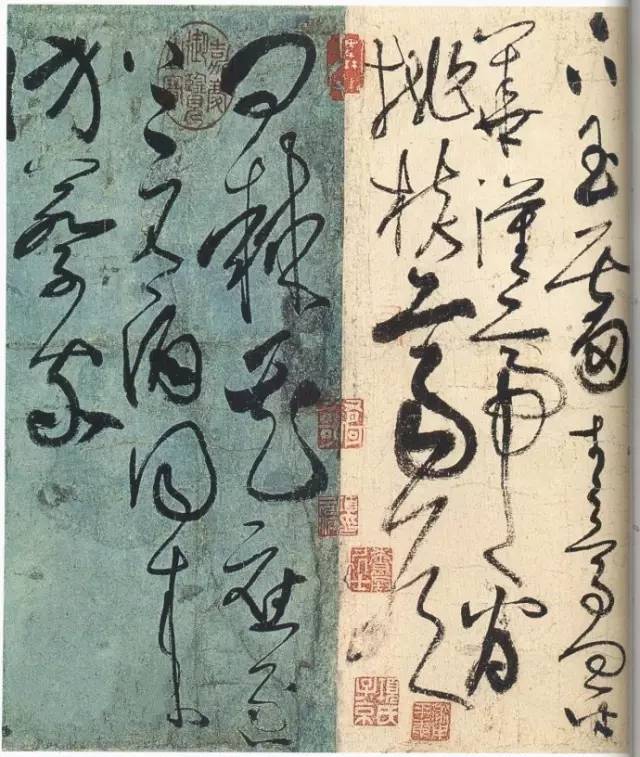 下玉霤青鳥向金
華漢帝看
桃核齊侯
問棘花應逐
上元酒同來
訪蔡家